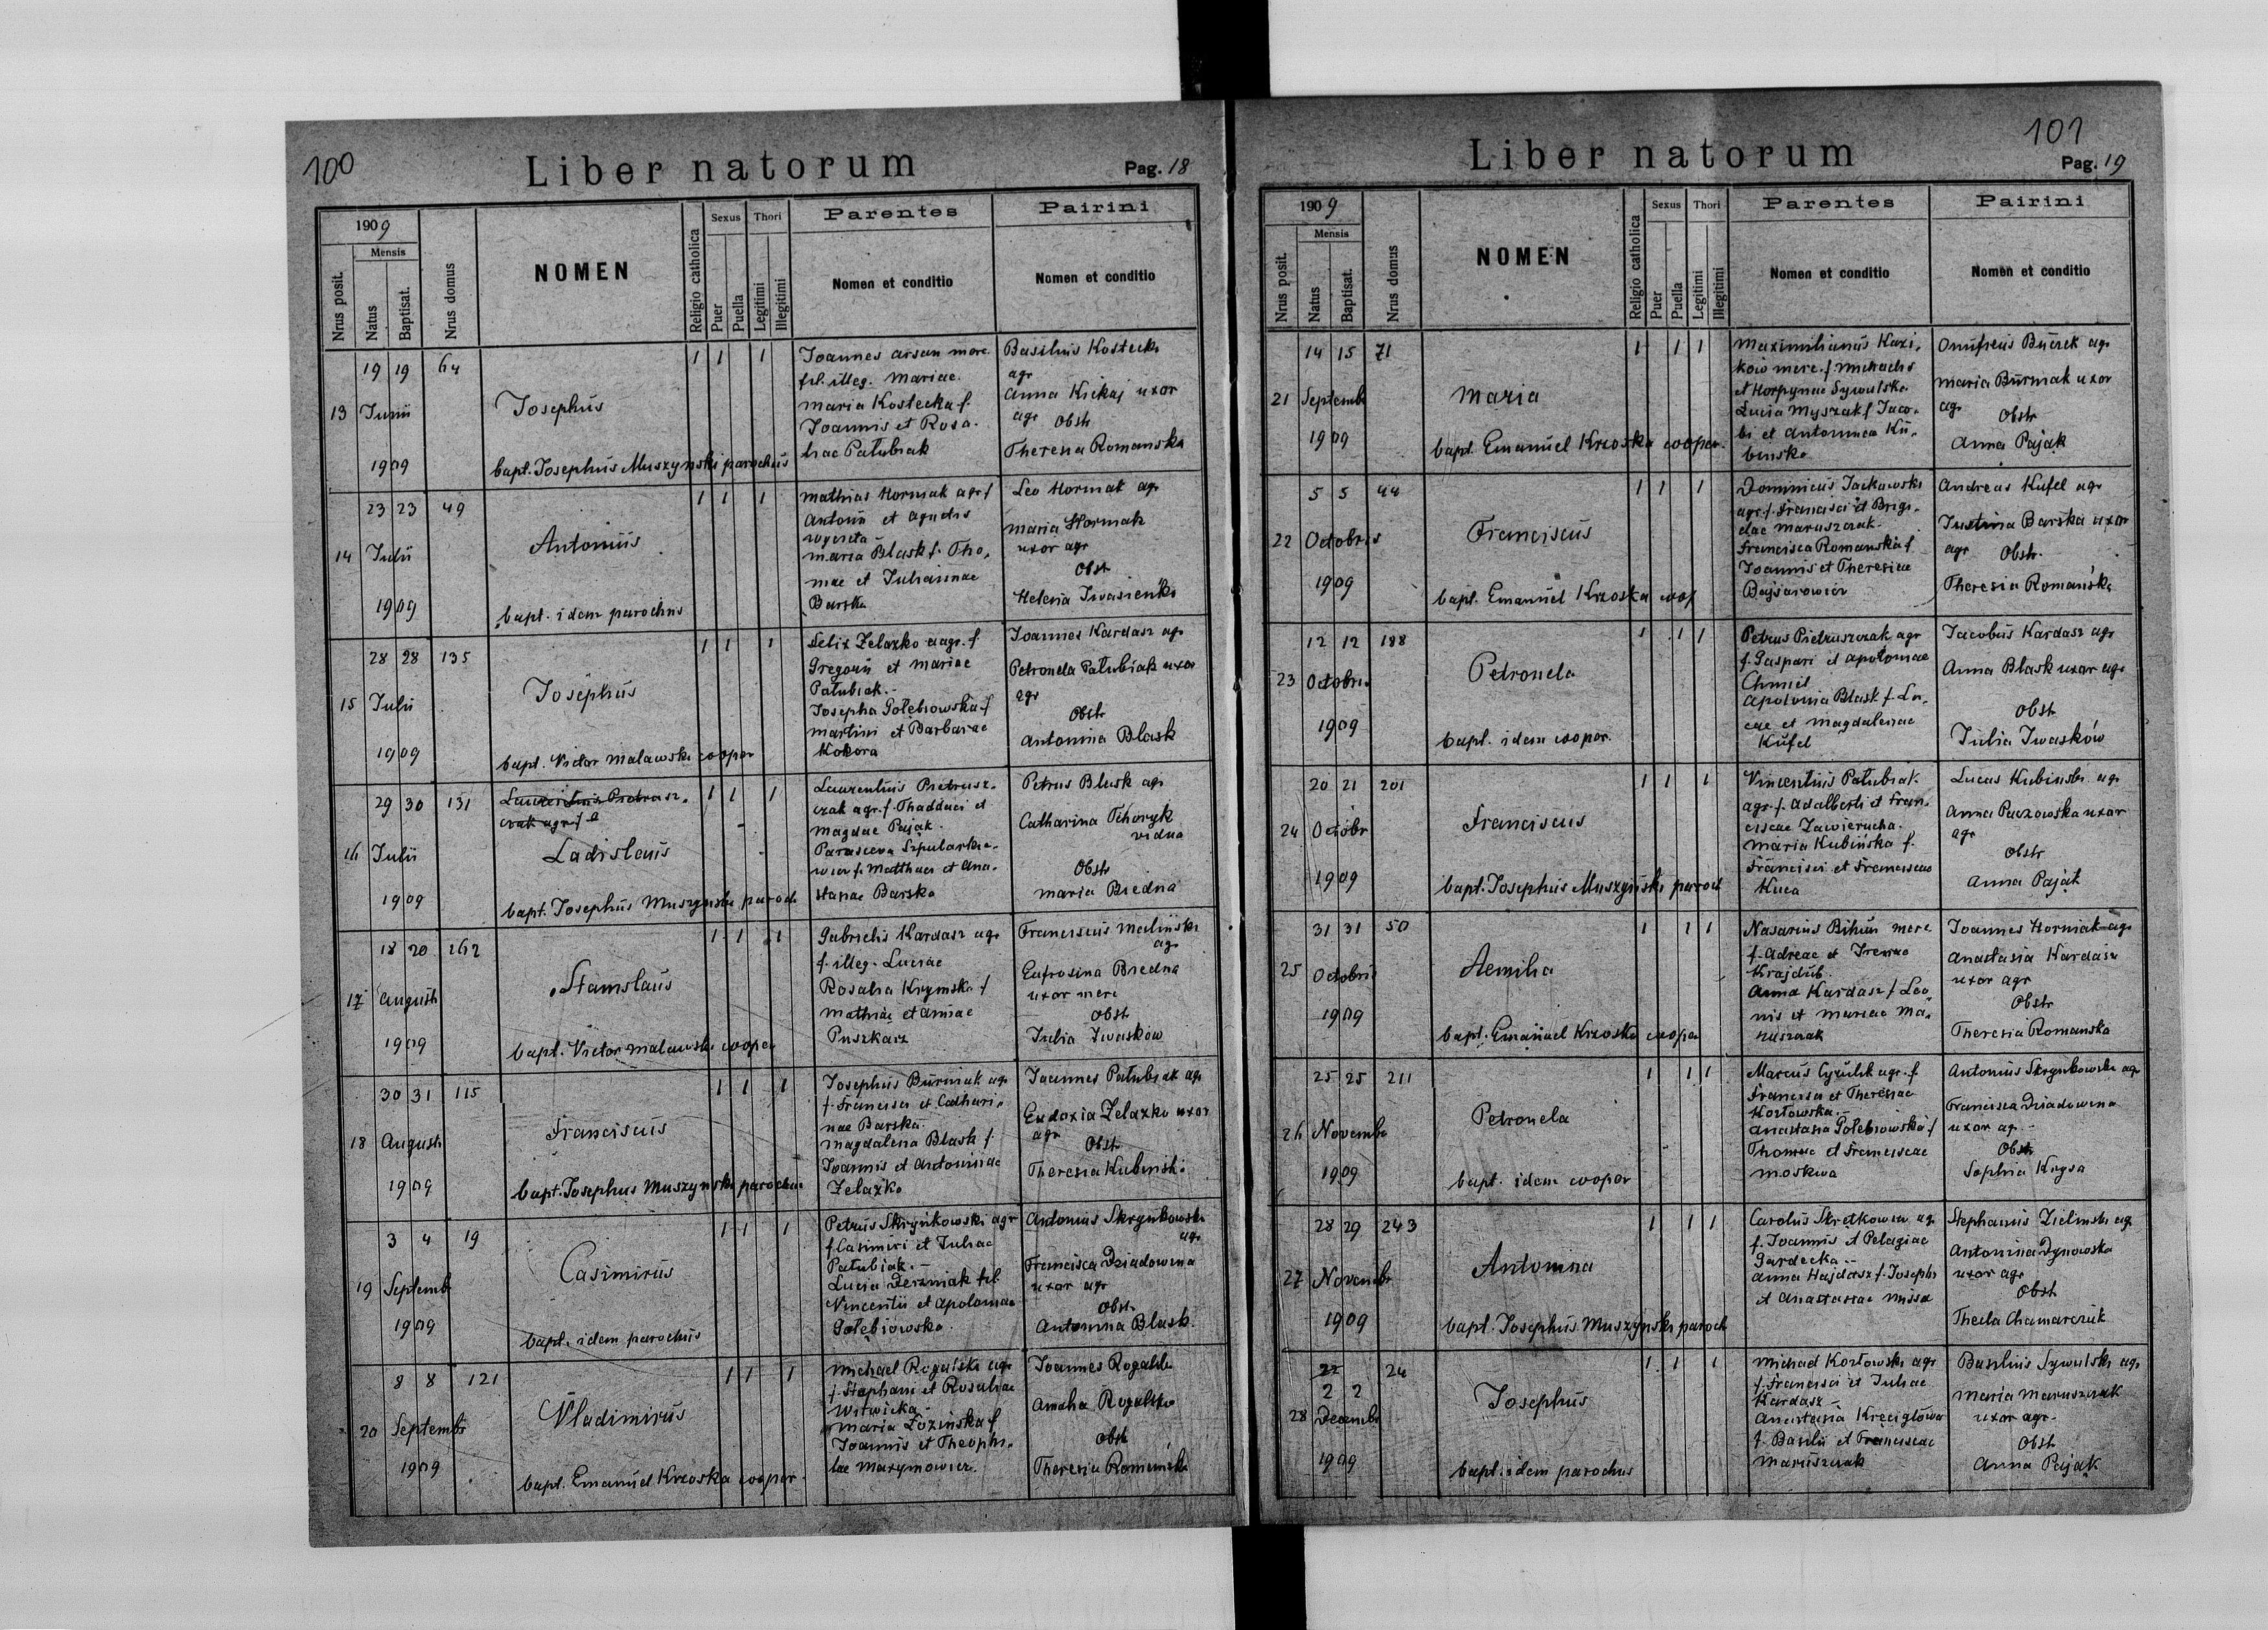 100
Liber natorum
Pag. 18
1909
Mensis
Nrus posit.
Natus
Baptisat.
Nrus domus
NOMEN
Religio catholica
Sexus
Puer
Puella
Thori
Legitimi
Illegitimi
Parentes
Nomen et conditio
Pairini
Nomen et conditio
13
19 19 64
Junii
1909
Josephus
bapt. Josephus Muszynski parochus
1 1 1
Joannes arsan merc.
fil. illeg. Mariae.
Maria Kostecka f.
Joannis et Rosa.
liae Patubiak
Basilius Kostecki
agr
Anna Kickaj uxor
agr Obstr
Theresia Romanska
14
23 23 49
Julii
1909
Antonius
bapt. idem parochus
1 1 1
Mathias Horniak agr f
Antonii et Agnetis
Maria Blask f. Tho,
mae et Juliannae
Barska
Leo Horniak agr
Maria Horniak
uxor agr
Obstr
Helena Iwasienko
15
28 28 135
Julii
1909
Josephus
bapt. Victor Malawski cooper
1 1 1
Felix Zelazko agr. f
Gregorii et Mariae
Patubiak.-
Josepha Gołebiowska f
Martini et Barbarae
Kokora
Joannes Kardasz agr
Petronela Patubiak uxor
agr
Obstr
Antonina Blask
16
29 30 131
Julii
1909
Laurentius Pietrusz.
czak agr. f
Ladislaus
bapt. Josephus Muszynski paroch
1 1 1
Laurentius Pietrusz.
czak agr. f. Thaddaei et
Magdae Pająk.
Parasceva Szpularkie-
wicz f. Matthaei et Ana.
stasiae Barska
Petrus Blask agr
Catharina Tchoryk
vidua
Obstr
Maria Biedna
17
18 20 262
Augusti
1909
Stanislaus
bapt. Victor Malawski cooper
1 1 1
Gabrielis Kardasz agr
f. illeg. Luciae
Rosalia Krymska f
Mathiae et Annae
Puszkarz
Franciscus Malinski
agr
Eufrosina Biedna
uxor merc
Obstr
Julia Iwasków
18
30 31 115
Augusti
1909
Franciscus
bapt. Josephus Muszynski parochus
1 1 1
Josephus Burniak agr
f. Francisci et Cathari,
nae Barska.
Magdalena Blask f.
Joannis et Antoninae
Zelazko
Joannes Patubiak agr
Eudoxia Zelazko uxor
agr
Obstr
Theresia Kubinski
19
3 4 19
Septembr
1909
Casimirus
bapt. idem parochus
1 1 1
Petrus Skrynkowski agr
f Casimiri et Juliae
Patubiak.-
Lucia Derzniak fil
Vincentii et Apoloniae
Gołębiowska
Antonius Skrynkowski
agr
Francisca Dziadowna
uxor agr
Obstr
Antonina Blask
20
8 8 121
Septembr
1909
Vladimirus
bapt. Emanuel Krzoska cooper
1 1 1
Michael Rogalski agr
f. Stephani et Rosaliae
Witwicka
Maria Łozinska f
Joannis et Theophi.
lae Maxymowicz.
Joannes Rogalski
Amalia Rogalska
Obstr
Theresia Romanska
101
Liber natorum
Pag. 19
1909
Mensis
Nrus posit.
Natus
Baptisat.
Nrus domus
NOMEN
Religio catholica
Sexus
Puer
Puella
Thori
Legitimi
Illegitimi
Parentes
Nomen et conditio
Pairini
Nomen et conditio
21
14 15 71
Septembr
1909
Maria
bapt. Emanuel Krzoska cooper.
1 1 1
Maximilianus Kazi,
ków merc. f Michaelis
et Horpynae Sywulska
Lucia Myszak f Jaco.
bi et Antonina Ku,
binska
Onufreus Burek agr
Maria Burniak uxor
agr
Obstr
Anna Pająk
22
5 5 44
Octobris
1909
Franciscus
bapt. Emanuel Krzoska coop
1 1 1
Dominicus Jackowski
agr. f. Francisci et Brigi,
dae Maruszczak.
Francisca Romanska f
Joannis et Theresiae
Bajsarowicz
Andreas Kufel agr
Justina Barska uxor
agr Obstr.
Theresia Romańska
23
12 12 188
Octobris
1909
Petronela
bapt. idem cooper.
1 1 1
Petrus Pietruszczak agr
f. Gaspari et Apoloniae
Chmiel
Apolonia Blask f. Lu,
cae et Magdalenae
Kufel
Jacobus Kardasz agr
Anna Blask uxor agr
Obstr
Julia Iwasków
24
20 21 201
Octobr
1909
Franciscus
bapt. Josephus Muszyński paroch
1 1 1
Vincentius Patubiak
agr. f. Adalberti et Fran,
ciscae Zawierucha.
Maria Kubińska f.
Francisci et Franciscae
Kuca
Lucas Kubinski agr
Anna Paczowska uxor
agr
Obstr
Anna Pająk
25
31 31 50
Octobris
1909
Aemilia
bapt. Emanuel Krzoska cooper
1 1 1
Nasarius Bihun merc
f. Adreae et Irenae
Krajdub.
Anna Kardasz f Leo
nis et Mariae Ma,
ruszczak
Joannes Horniak agr
Anastasia Kardasz
uxor agr
Obstr
Theresia Romanska
26
25 25 211
Novembr
1909
Petronela
bapt. idem cooper
1 1 1
Marcus Cyrulik agr. f
Francisci et Theresiae
Kozłowska.-
Anastasia Gołebiowska f
Thomae et Franciscae
Moskwa
Antonius Skrynkowski agr
Francisca Dziadowna
uxor agr.-
Obstr
Sophia Krysa
27
28 29 243
Novembr
1909
Antonina
bapt. Josephus Muszynski paroch
1 1 1
Carolus Skretkowicz agr
f. Joannis et Pelagiae
Gardecka.-
Anna Hajdasz f. Josephi
et Anastasiae Missa
Stephanus Zielinski agr
Antonina Dynowska
uxor agr
Obstr
Thecla Chamarczuk
28
22
2 2 24
Decembr
1909
Josephus
bapt. idem parochus
1 1 1
Michael Kozłowski agr
f. Francisci et Juliae
Kardasz -
Anastasia Kręciglowa
f. Basilii et Franciscae
Maruszczak
Basilius Sywulski agr
Maria Maruszczak
uxor agr.
Obstr
Anna Pająk